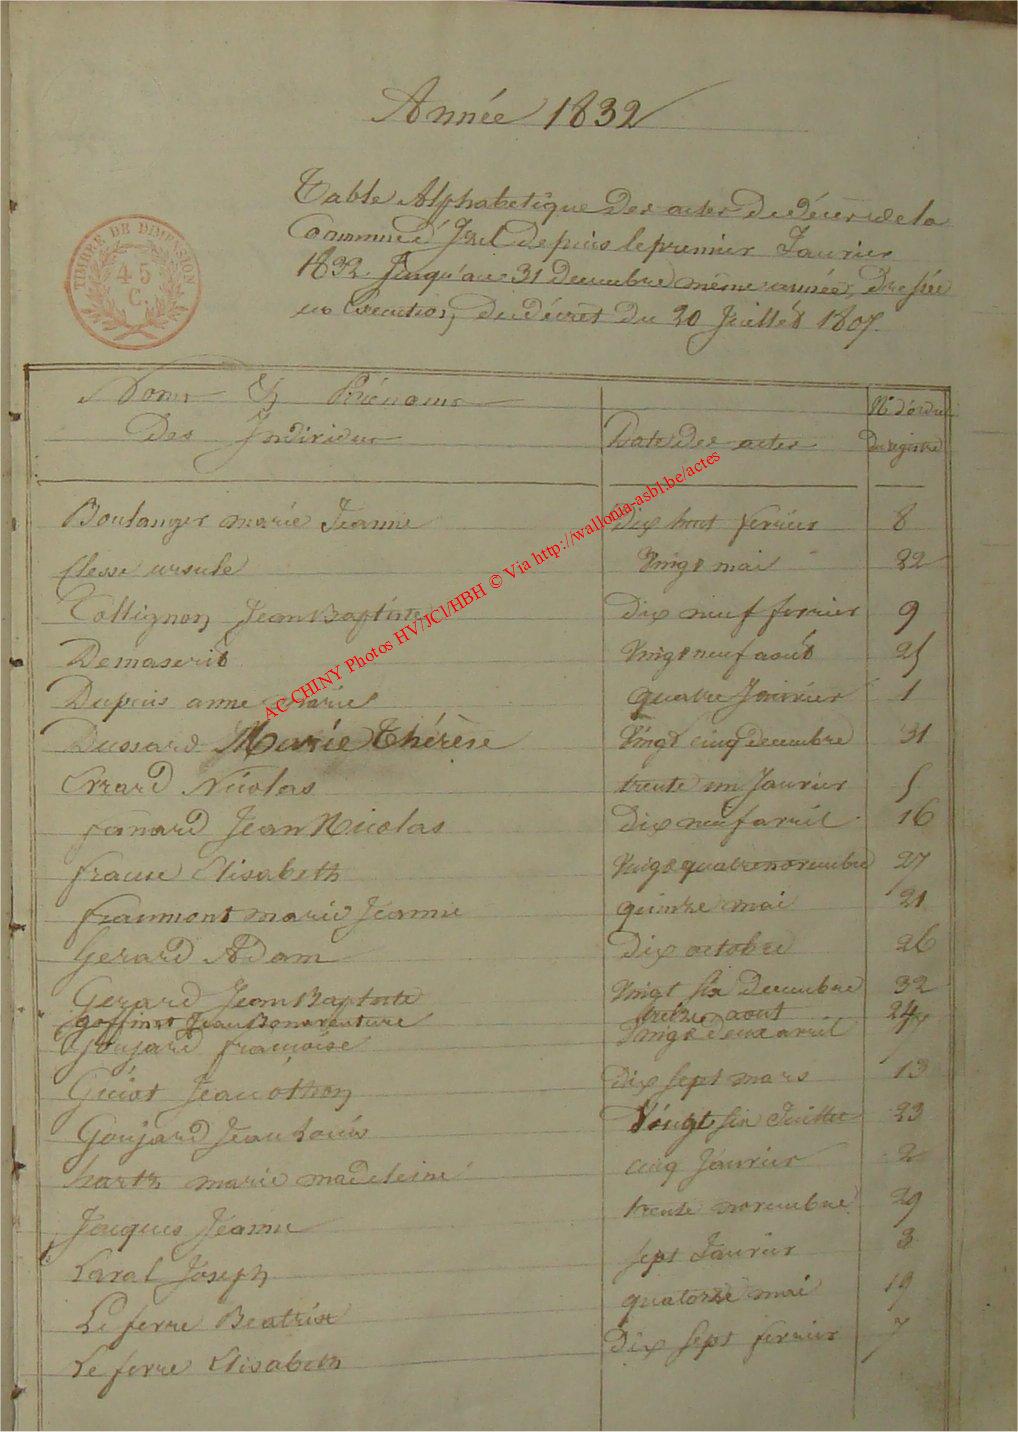 Année 1832
Table Alphabetique Des actes De décès de la
Commune d' Izel Depuis le premier Janvier
1832 Jusqu'au 31 Decembre même année, Dressée
en Execution, du décret Du 20 Juillet 1807.
TIMBRE DE DIMENSION
45
C.
Noms & Prénoms
Des Individus
Date Des actes
N° d'ordre
Du registre
Boulanger marie Jeanne Dix huit fevrier 8
Clesse ursule Vingt mai 22
Collignon Jean Baptiste Dix neuf fevrier 9
Demaserit Vingt neuf août 25
Dupuis anne marie quatre Janvier 1
Dussard Marie Thérèse Vingt cinq decembre 31
Errard Nicolas trente un Janvier 5
fanard Jean Nicolas Dix neuf avril 16
france Elisabeth Vingt quatre novembre 27
fraumont marie Jeanne quinze mai 21
Gerard Adam Dix octobre 26
Gerard Jean Baptiste Vingt six Decembre 32
goffinet Jean Bonaventure treize aout 24
Goujard françoise Vingt deux avril
Guiot Jean othon Dix sept mars 13
Goujard Jean Louis Vingt six Juillet 23
hartz marie madeleine cinq Janvier 2
Jacques Jeanne trente novembre 29
Laval Joseph sept Janvier 3
Le ferre Beatrix quatorze mai 19
Le ferre Elisabeth Dix sept fevrier 7
AC CHINY Photos HV/JCI/HBH © Via http://wallonia-asbl.be/actes